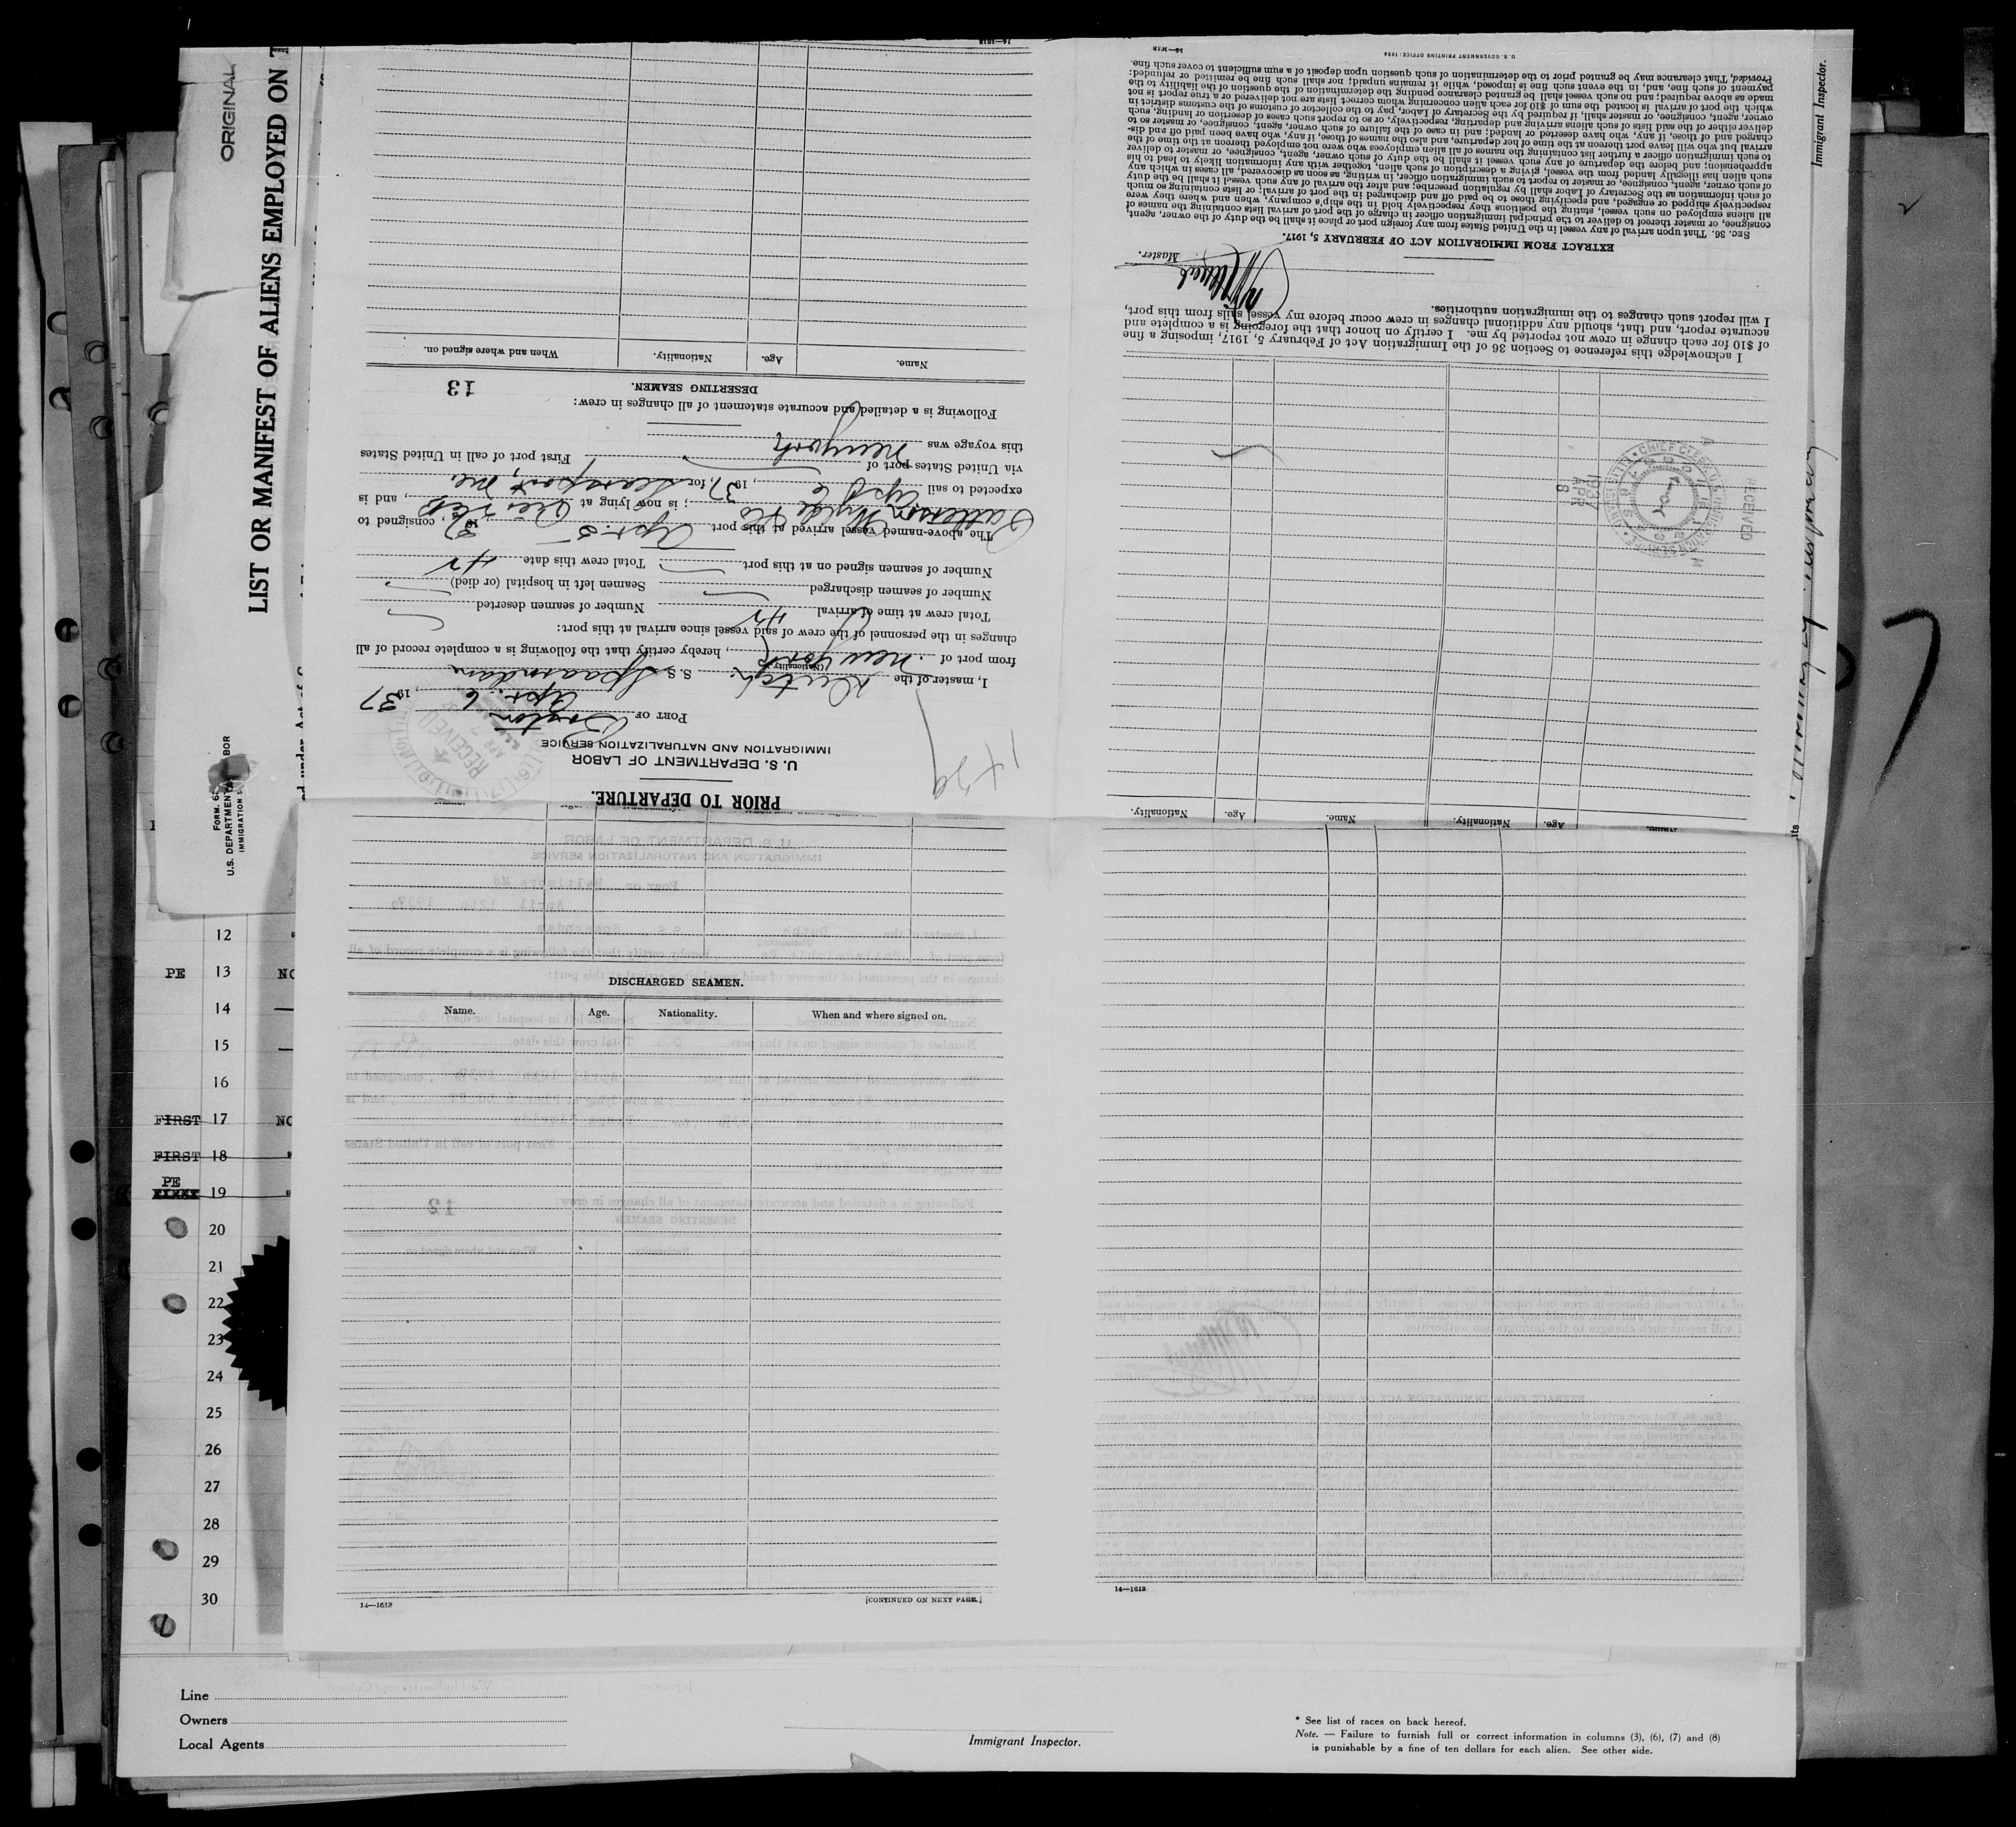 ORIGINAL
LIST OR MANIFEST OF ALIENS EMPLOYED ON
U.S. DEPARTMENT
IMMIGRATION
PRIOR TO DEPARTURE.
U. S. DEPARTMENT OF LABOR
IMMIGRATION AND NATURALIZATION SERVICE
PORT OF Boston
Apr. 6, 1937
I, master of the Dutch S. S. Spaarndam
(Nationality)
from port of New York, hereby certify that the following is a complete record of all
changes in the personnel of the crew of said vessel since arrival at this port:
Total crew at time of arrival 42 Number of seamen deserted
Number of seamen discharged Seamen left in hospital (or died)
Number of seamen signed on at this port Total crew this date 42
The above-named vessel arrived at this port Apr. 5 1937, consigned to
Patterson Wylde Co; is now lying at, and is
expected to sail Apr 6, 1937, for Searsport, Me
via United States port of First port of call in United States
this voyage was New York
Following is a detailed and accurate statement of all changes in crew:
DESERTING SEAMEN.
13
Name. Age. Nationality. When and where signed on.
14—1613
Name. Age. Nationality. Name. Age. Nationality.
RECEIVED
1937 APR 8
I acknowledge this reference to Section 36 of the Immigration Act of February 5, 1917, imposing a fine
of $10 for each change in crew not reported by me. I certify on honor that the foregoing is a complete and
accurate report, and that, should any additional changes in crew occur before my vessel sails from this port,
I will report such changes to the immigration authorities.
Master.
EXTRACT FROM IMMIGRATION ACT OF FEBRUARY 5, 1917.
SEC. 36. That upon arrival of any vessel in the United States from any foreign port or place it shall be the duty of the owner, agent,
consignee, or master thereof to deliver to the principal immigration officer in charge of the port of arrival lists containing the names of
all aliens employed on such vessel, stating the positions they respectively hold in the ship's company, when and where they were
respectively shipped or engaged, and specifying those to be paid off and discharged in the port of arrival; or lists containing so much
of such information as the Secretary of Labor shall by regulation prescribe; and after the arrival of any such vessel it shall be the duty
of such owner, agent, consignee, or master to report to such immigration officer, in writing, as soon as discovered, all cases in which any
such alien has illegally landed from the vessel, giving a description of such alien, together with any information likely to lead to his
apprehension; and before the departure of any such vessel it shall be the duty of such owner, agent, consignee, or master to deliver
to such immigration officer a further list containing the names of all alien employees who were not employed thereon at the time of the
arrival but who will leave port thereon at the time of her departure, and also the names of those, if any, who have been paid off and dis-
charged and of those, if any, who have deserted or landed; and in case of the failure of such owner, agent, consignee, or master so to
deliver either of the said lists of such aliens arriving and departing, respectively, or so to report such cases of desertion or landing, such
owner, agent, consignee, or master shall, if required by the Secretary of Labor, pay to the collector of customs of the customs district in
which the port of arrival is located the sum of $10 for each alien concerning whom correct lists are not delivered or a true report is not
made as above required; and no such vessel shall be granted clearance pending the determination of the question of the liability to the
payment of such fine, and, in the event such fine is imposed, while it remains unpaid; nor shall such fine be remitted or refunded:
Provided, That clearance may be granted prior to the determination of such question upon deposit of a sum sufficient to cover such fine.
U. S. GOVERNMENT PRINTING OFFICE: 1934
14—1613
Immigrant Inspector.
DISCHARGED SEAMEN.
Name. Age. Nationality. When and where signed on.
14—1613
[CONTINUED ON NEXT PAGE.]
14—1613
12
PE 13 NO
14
15
16
FIRST 17 NO
FIRST 18
PE
FIRST 19
20
21
22
23
24
25
26
27
28
29
30
Line
Owners
Local Agents
Immigrant Inspector.
* See list of races on back hereof.
Note. — Failure to furnish full or correct information in columns (3), (6), (7) and (8)
is punishable by a fine of ten dollars for each alien. See other side.